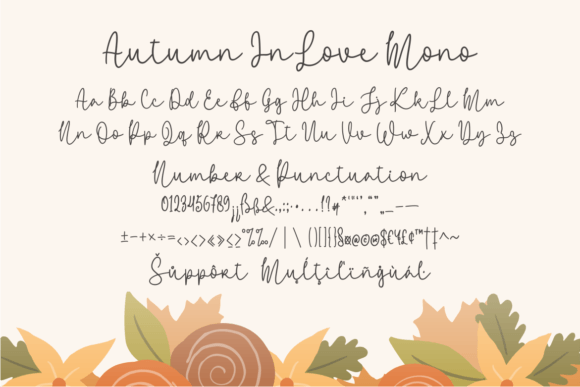 Autumn In Love Mono
Aa Bb Cc Dd Ee Ff Gg Hh Ii Jj Kk Ll Mm
Nn Oo Pp Qq Rr Ss Tt Uu Vv Ww Xx Yy Zz
Number & Punctuation
0123456789¡¿
±−+×÷=‹›<>«»≤≥
Šüppôrt Mųļţįľïñġùáł